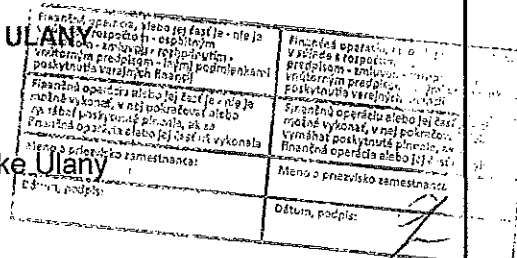 ULANY
Finančná operácia, alebo jej časť je - nie je
rozpočtom - osobitným
zmluvou - rozhodnutím -
vnútorným predpisom - inými podmienkami
poskytnutia verejných financií
Finančnú operáciu alebo jej časť je - nie je
možné vykonať, v nej pokračovať alebo
vymáhať poskytnuté plnenie, ak sa
finančná operácia alebo jej časť už vykonala
ke Ulany
Meno a priezvisko zamestnanca:
Dátum, podpis:
Finančná
v súlade s rozpočtom
predpisom - zmluvou
vnútorným predpisom
poskytnutia verejných
Finančnú operáciu alebo jej časť
možné vykonať, v nej pokračovať
vymáhať poskytnuté plnenie, ak
finančná operácia alebo jej časť
Meno a priezvisko zamestnanca
Dátum, podpis: